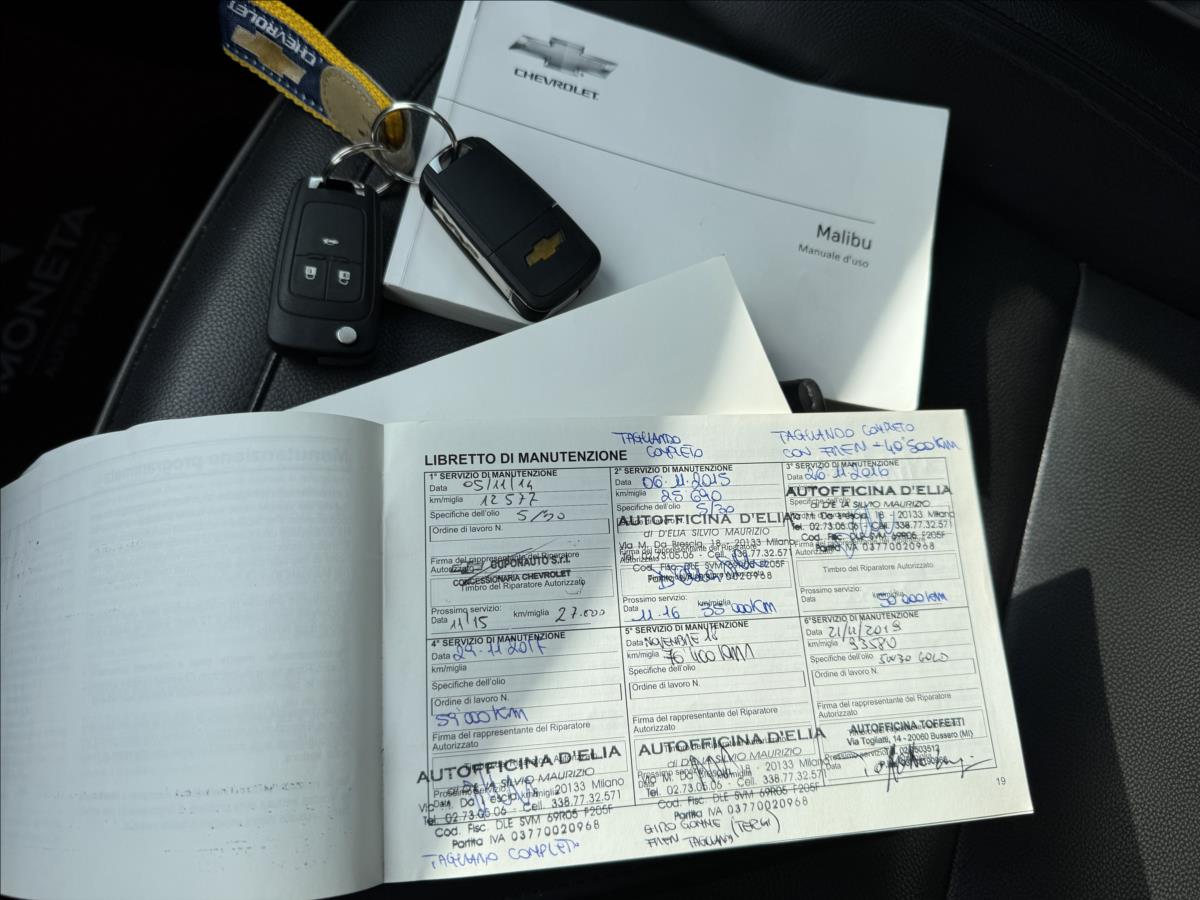 CHEVROLET
CHEVROLET
Malibu
Manuale d'uso
MONETA
LIBRETTO DI MANUTENZIONE
TAGLIANDO
COMPLETO
TAGLIANDO COMPLETO
CON FREN - 40'500KM
1° SERVIZIO DI MANUTENZIONE
Data 05/11/14
km/miglia 12 577
Specifiche dell'olio 5/30
Ordine di lavoro N.
Firma del rappresentante del Riparatore
Autorizzato
CONCESSIONARIA CHEVROLET
Timbro del Riparatore Autorizzato
Prossimo servizio:
Data 11/15 km/miglia 27.000
2° SERVIZIO DI MANUTENZIONE
Data 06.11.2015
km/miglia 25 690
5/30
AUTOFFICINA D'ELIA
di D'ELIA SILVIO MAURIZIO
Via M. Da Brescia, 18 - 20133 Milano
Tel. 02.73.05.06 - Cell. 338.77.32.571
Cod. Fisc. DLE SVM 69R05 F205F
Partita IVA 03770020968
Prossimo servizio:
Data 11.16 km/miglia 55 000KM
3° SERVIZIO DI MANUTENZIONE
Data 26.11.2016
AUTOFFICINA D'ELIA
SILVIO MAURIZIO
18 - 20133 Milano
Tel. 02.73.05.06 - Cell. 338.77.32.571
Cod. Fisc. DLE SVM 69R05 F205F
Partita IVA 03770020968
Timbro del Riparatore Autorizzato
Prossimo servizio:
Data km/miglia 50 000KM
4° SERVIZIO DI MANUTENZIONE
Data 29.11.2017
km/miglia
Specifiche dell'olio
Ordine di lavoro N.
59 000KM
Firma del rappresentante del Riparatore
Autorizzato
AUTOFFICINA D'ELIA
SILVIO MAURIZIO
20133 Milano
Tel. 02.73.05.06 - Cell. 338.77.32.571
Cod. Fisc. DLE SVM 69R05 F205F
Partita IVA 03770020968
TAGLIANO COMPLETO
5° SERVIZIO DI MANUTENZIONE
Data NOVEMBRE 18
km/miglia 76 400 KM
Specifiche dell'olio
Ordine di lavoro N.
Firma del rappresentante del Riparatore
Autorizzato
AUTOFFICINA D'ELIA
SILVIO MAURIZIO
18 - 20133 Milano
Tel. 02.73.05.06 - Cell. 338.77.32.571
Cod. Fisc. DLE SVM 69R05 F205F
Partita IVA 03770020968
GIRO GOMME (TERGI)
6° SERVIZIO DI MANUTENZIONE
Data 21/11/2019
km/miglia 93580
Specifiche dell'olio 5W30 GOLD
Ordine di lavoro N.
Firma del rappresentante del Riparatore
Autorizzato
AUTOFFICINA TOFFETTI
Via Togliatti, 14 - 20060 Bussero (MI)
19